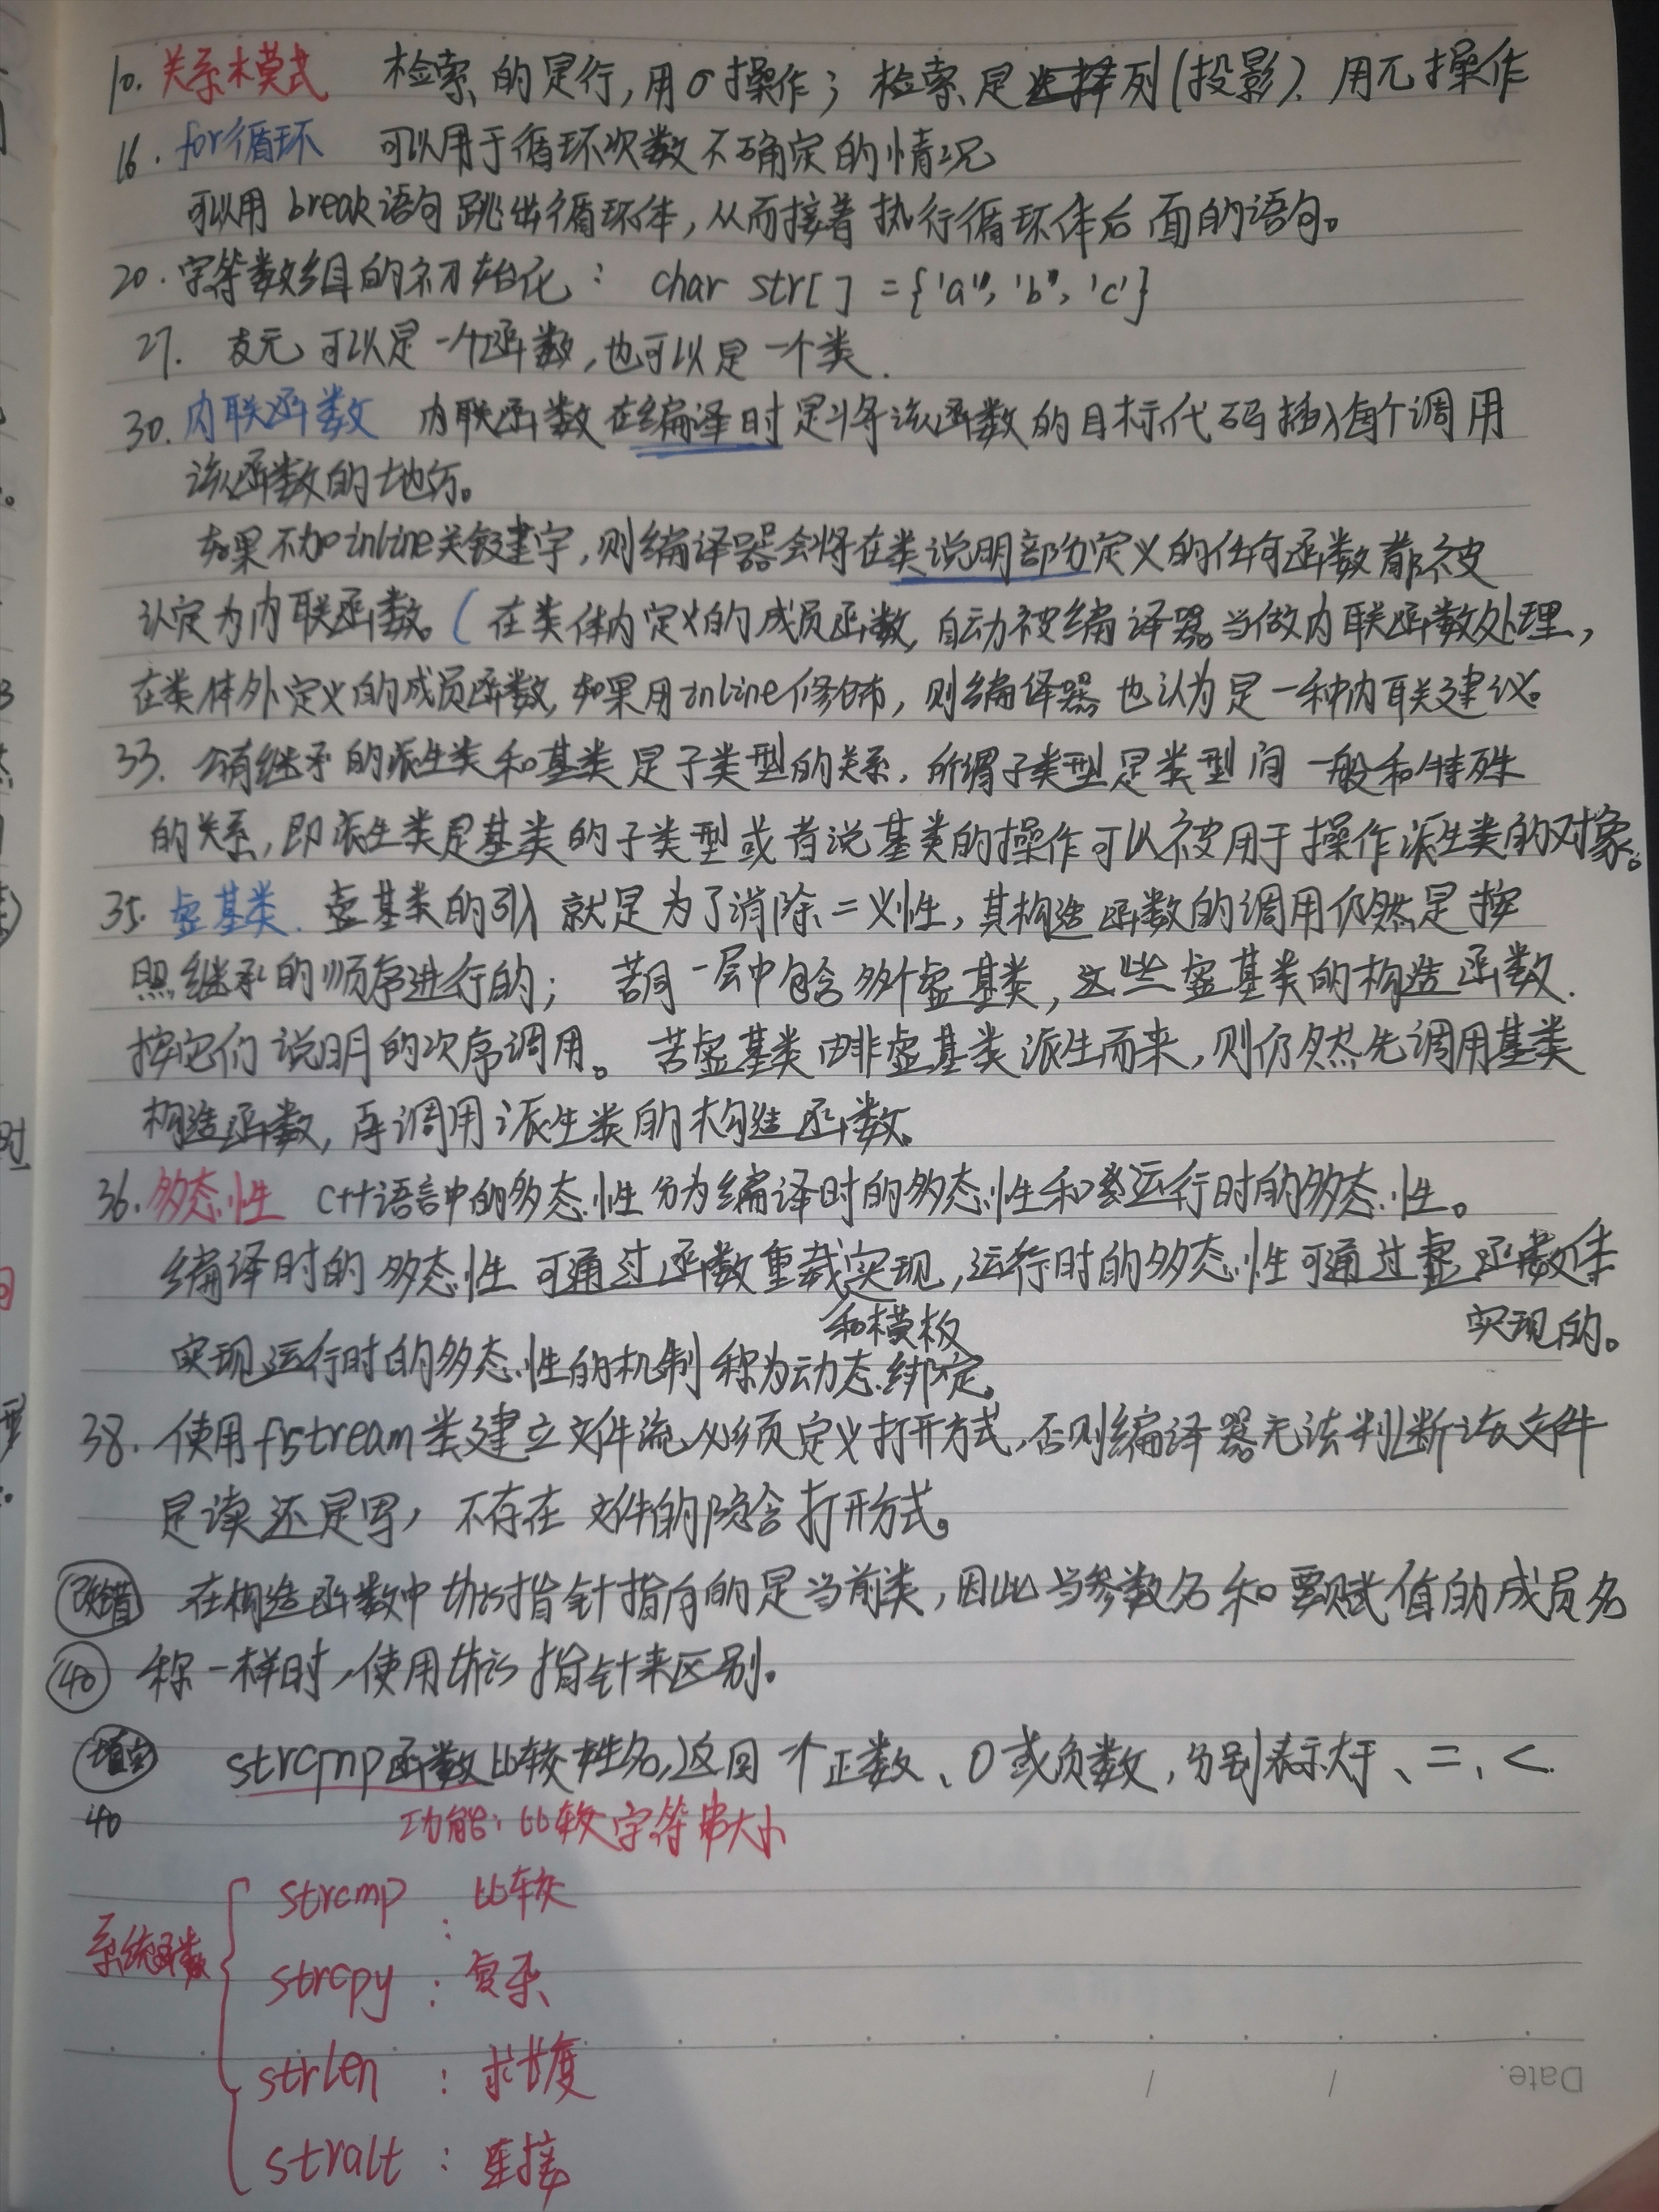 10. 关系模式 检索的是行，用σ操作；检索是列(投影)．用π操作
16. for循环 可以用于循环次数不确定的情况
可以用break语句跳出循环体，从而接着执行循环体后面的语句。
20. 字符数组的初始化： char str[] = {'a', 'b', 'c'}
27. 友元可以是一个函数，也可以是一个类.
30. 内联函数 内联函数在编译时是将该函数的目标代码插入每个调用
该函数的地方。
如果不加inline关键字，则编译器会将在类说明部分定义的任何函数都被
认定为内联函数。(在类体内定义的成员函数，自动被编译器当做内联函数处理，
在类体外定义的成员函数，如果用inline修饰，则编译器也认为是一种内联建议。
33. 公有继承的派生类和基类是子类型的关系，所谓子类型是类型间一般和特殊
的关系，即派生类是基类的子类型或者说基类的操作可以被用于操作派生类的对象。
35. 虚基类. 虚基类的引入就是为了消除二义性，其构造函数的调用仍然是按
照继承的顺序进行的； 若同一层中包含多个虚基类，这些虚基类的构造函数
按它们说明的次序调用。若虚基类由非虚基类派生而来，则仍然先调用基类
构造函数，再调用派生类的构造函数。
36. 多态性 C++语言中的多态性分为编译时的多态性和运行时的多态性。
编译时的多态性可通过函数重载实现，运行时的多态性可通过虚函数来
和模板
实现的。
实现运行时的多态性的机制称为动态绑定。
38. 使用fstream类建立文件流必须定义打开方式，否则编译器无法判断该文件
是读还是写，不存在文件的隐含打开方式。
改错 在构造函数中this指针指向的是当前类，因此当参数名和要赋值的成员名
40 称一样时，使用this指针来区别。
填空 strcmp函数比较姓名，返回一个正数、0或负数，分别表示大于、=、<.
40 功能：比较字符串大小
系统函数
strcmp : 比较
strcpy : 复杂
strlen : 求长度
stralt : 连接
Date.